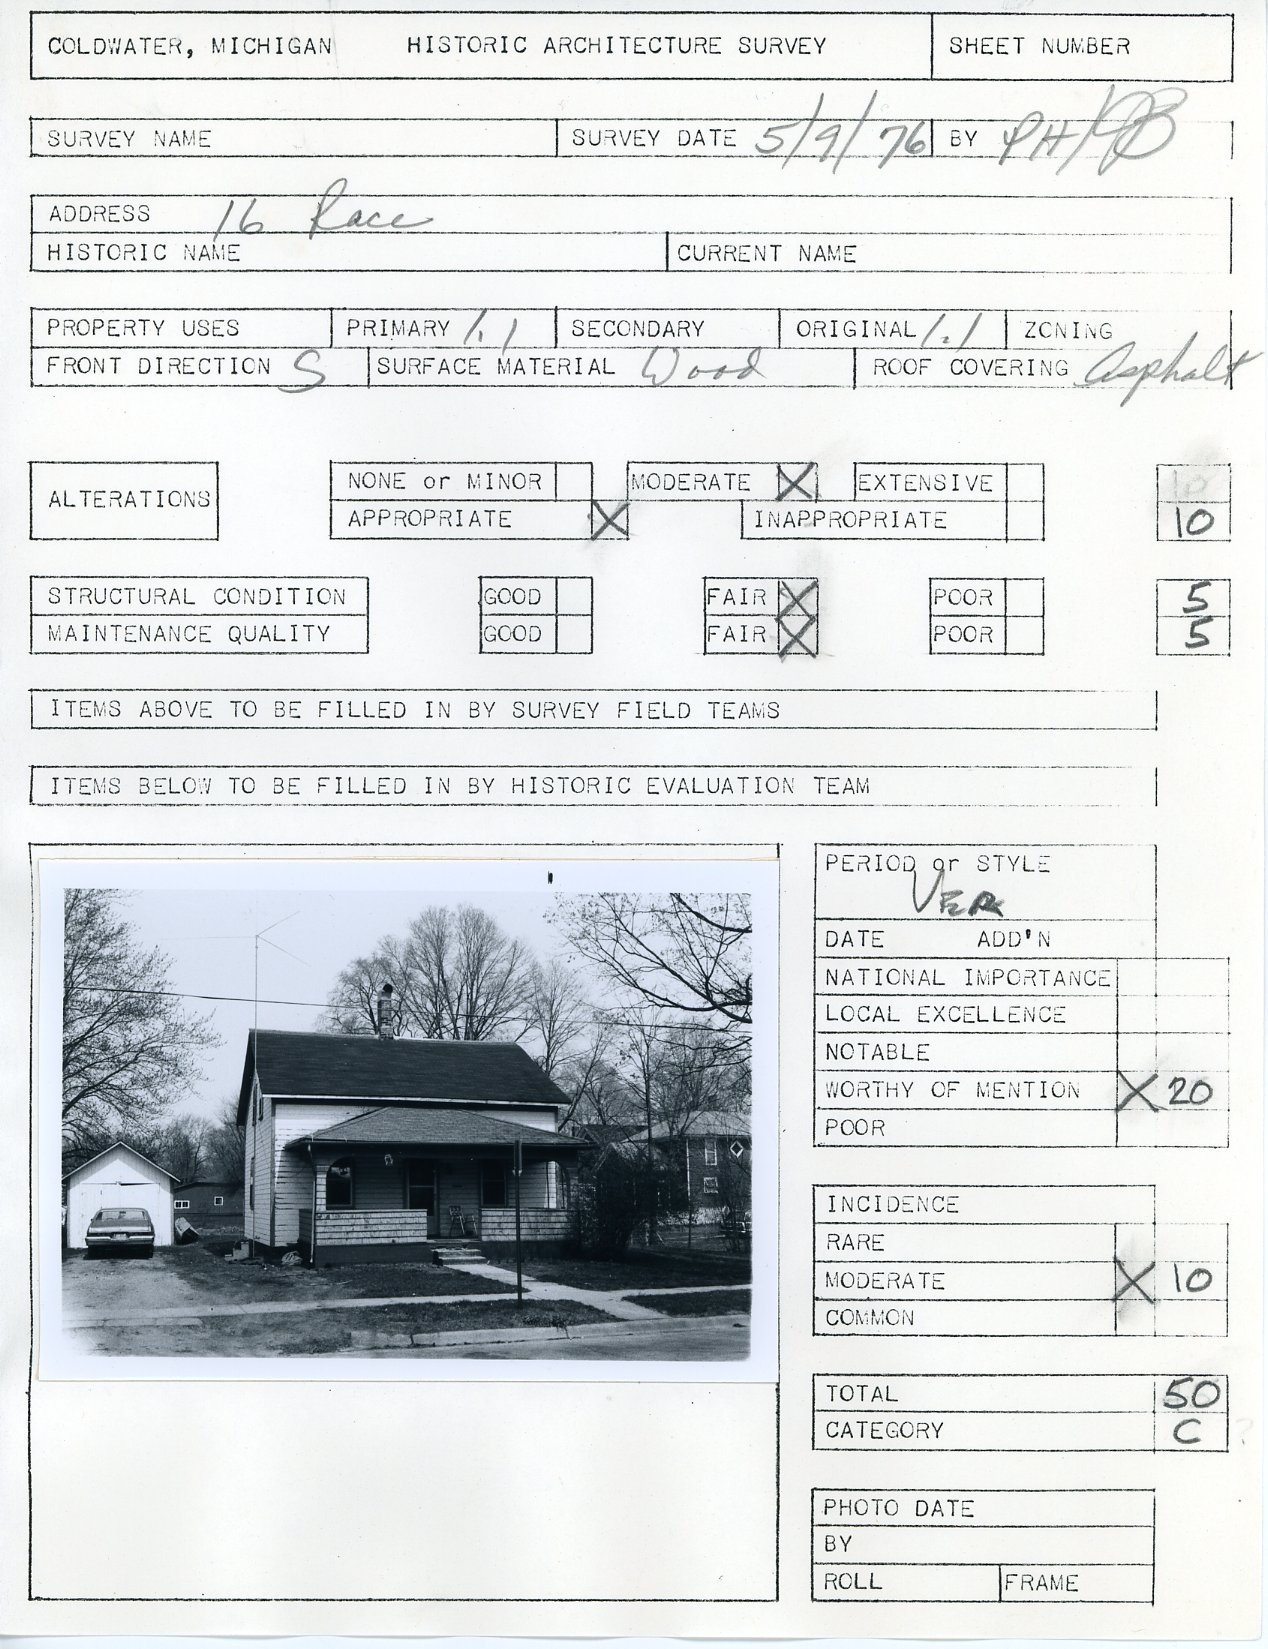 COLDWATER, MICHIGAN HISTORIC ARCHITECTURE SURVEY SHEET NUMBER
SURVEY NAME SURVEY DATE 5/9/76 BY PH/
ADDRESS 16 Race
HISTORIC NAME CURRENT NAME
PROPERTY USES PRIMARY 1.1 SECONDARY ORIGINAL 1.1 ZONING
FRONT DIRECTION S SURFACE MATERIAL Wood ROOF COVERING Asphalt
ALTERATIONS NONE or MINOR MODERATE X EXTENSIVE 10
APPROPRIATE X INAPPROPRIATE 10
STRUCTURAL CONDITION GOOD FAIR X POOR 5
MAINTENANCE QUALITY GOOD FAIR X POOR 5
ITEMS ABOVE TO BE FILLED IN BY SURVEY FIELD TEAMS
ITEMS BELOW TO BE FILLED IN BY HISTORIC EVALUATION TEAM
PERIOD or STYLE
VER
DATE ADD'N
NATIONAL IMPORTANCE
LOCAL EXCELLENCE
NOTABLE
WORTHY OF MENTION X 20
POOR
INCIDENCE
RARE
MODERATE X 10
COMMON
TOTAL 50
CATEGORY C ?
PHOTO DATE
BY
ROLL FRAME